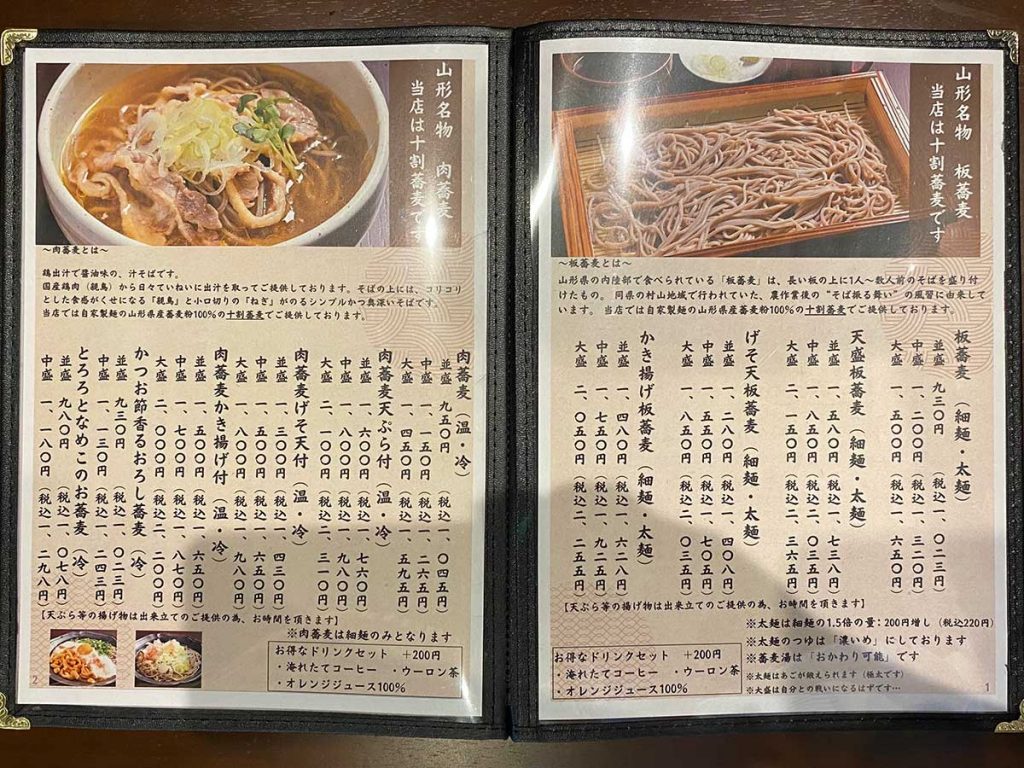 山形名物 板蕎麦
当店は十割蕎麦です
～板蕎麦とは～
山形県の内陸部で食べられている「板蕎麦」は、長い板の上に1人～数人前のそばを盛り付
けたもの。 同県の村山地域で行われていた、農作業後の“そば振る舞い”の風習に由来して
います。 当店では自家製麺の山形県産蕎麦粉100%の十割蕎麦でご提供しております。
板蕎麦（細麺・太麺）
並盛 九三〇円（税込一、〇二三円）
中盛 一、二〇〇円（税込一、三二〇円）
大盛 一、五〇〇円（税込一、六五〇円）
天盛板蕎麦（細麺・太麺）
並盛 一、五八〇円（税込一、七三八円）
中盛 一、八五〇円（税込二、〇三五円）
大盛 二、一五〇円（税込二、三六五円）
げそ天板蕎麦（細麺・太麺）
並盛 一、二八〇円（税込一、四〇八円）
中盛 一、五五〇円（税込一、七〇五円）
大盛 一、八五〇円（税込二、〇三五円）
かき揚げ板蕎麦（細麺・太麺）
並盛 一、四八〇円（税込一、六二八円）
中盛 一、七五〇円（税込一、九二五円）
大盛 二、〇五〇円（税込二、二五五円）
【天ぷら等の揚げ物は出来立てのご提供の為、お時間を頂きます】
※太麺は細麺の1.5倍の量：200円増し（税込220円）
※太麺のつゆは「濃いめ」にしております
※蕎麦湯は「おかわり可能」です
※太麺はあごが鍛えられます（極太です）
※大盛は自分との戦いになるはずです…
お得なドリンクセット +200円
・淹れたてコーヒー ・ウーロン茶
・オレンジジュース100%
1
山形名物 肉蕎麦
当店は十割蕎麦です
～肉蕎麦とは～
鶏出汁で醤油味の、汁そばです。
国産鶏肉（親鳥）から日々ていねいに出汁を取ってご提供しております。そばの上には、コリコリ
とした食感がくせになる「親鳥」と小口切りの「ねぎ」がのるシンプルかつ奥深いそばです。
当店では自家製麺の山形県産蕎麦粉100%の十割蕎麦でご提供しております。
肉蕎麦（温・冷）
並盛 九五〇円（税込一、〇四五円）
中盛 一、一五〇円（税込一、二六五円）
大盛 一、四五〇円（税込一、五九五円）
肉蕎麦天ぷら付（温・冷）
並盛 一、六〇〇円（税込一、七六〇円）
中盛 一、八〇〇円（税込一、九八〇円）
大盛 二、一〇〇円（税込二、三一〇円）
肉蕎麦げそ天付（温・冷）
並盛 一、三〇〇円（税込一、四三〇円）
中盛 一、五〇〇円（税込一、六五〇円）
大盛 一、八〇〇円（税込一、九八〇円）
肉蕎麦かき揚げ付（温・冷）
並盛 一、五〇〇円（税込一、六五〇円）
中盛 一、七〇〇円（税込一、八七〇円）
大盛 二、〇〇〇円（税込二、二〇〇円）
かつお節香るおろし蕎麦（冷）
並盛 九三〇円（税込一、〇二三円）
中盛 一、一三〇円（税込一、二四三円）
とろろとなめこのお蕎麦（冷）
並盛 九八〇円（税込一、〇七八円）
中盛 一、一八〇円（税込一、二九八円）
【天ぷら等の揚げ物は出来立てのご提供の為、お時間を頂きます】
※肉蕎麦は細麺のみとなります
お得なドリンクセット +200円
・淹れたてコーヒー ・ウーロン茶
・オレンジジュース100%
2